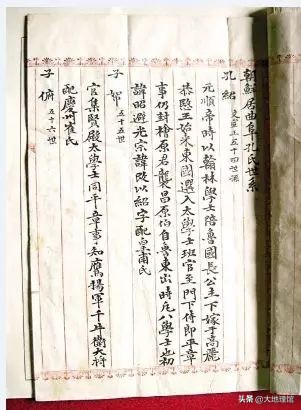 朝鮮居曲阜孔氏世系
孔紹
元順帝時以翰林學士陪魯國長公主下嫁于高麗
恭愍王始來東國選入太學士班官至門下侍郎平章
事仍封檜原君襲昌原伯自魯東出時凡八學士也初
諱昭避光宗諱改以紹字配皇甫氏
子帑 五十五世
官集賢殿太學士同平章事知鷹揚軍千牛衛大將
子俯 五十六世
配慶州崔氏
头条 @大地理馆